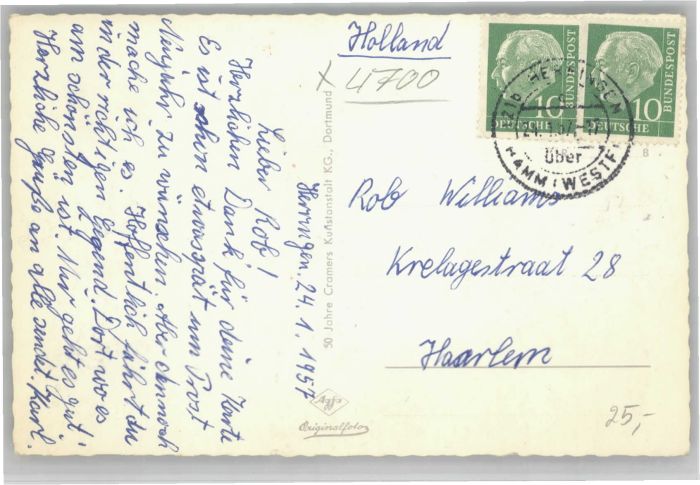 Herringen, 24.1.1957
Lieber Rob!
Herzlichen Dank für deine Karte
Es ist schon etwas spät um Prost
Neujahr zu wünschen. Aber dennoch
mache ich es. Hoffentlich fährst du
in der richtigen Gegend. Dort wo es
am schönsten ist. Mir geht es gut!
Herzliche Grüße an alle sendt Karl.
50 Jahre Cramers Kunstanstalt KG., Dortmund
Holland
x 4700
10
DEUTSCHE
BUNDESPOST
10
DEUTSCHE
BUNDESPOST
HERRINGEN
über
HAMM (WESTF)
8
Rob Williams
Krelagestraat 28
Haarlem
Agfa
Originalfoto
25,-